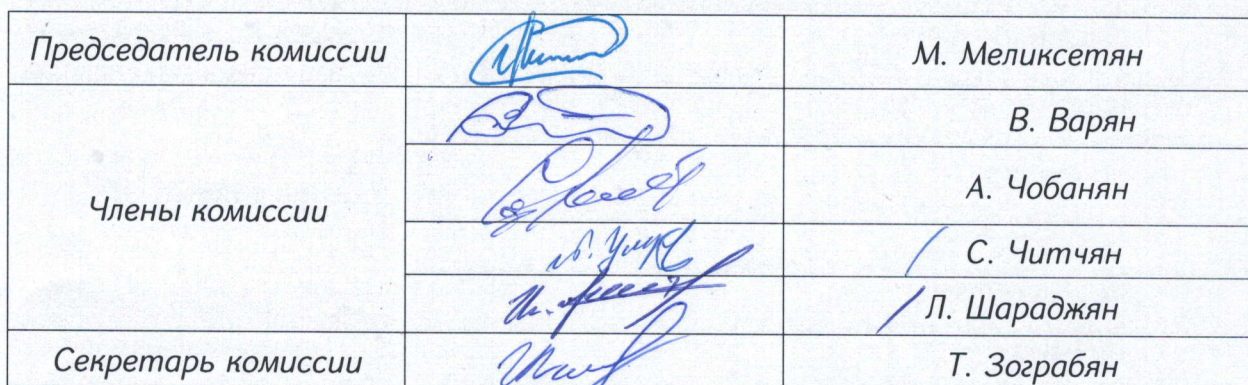 Председатель комиссии М. Меликсетян
В. Варян
Члены комиссии А. Чобанян
С. Читчян
Л. Шараджян
Секретарь комиссии Т. Зограбян